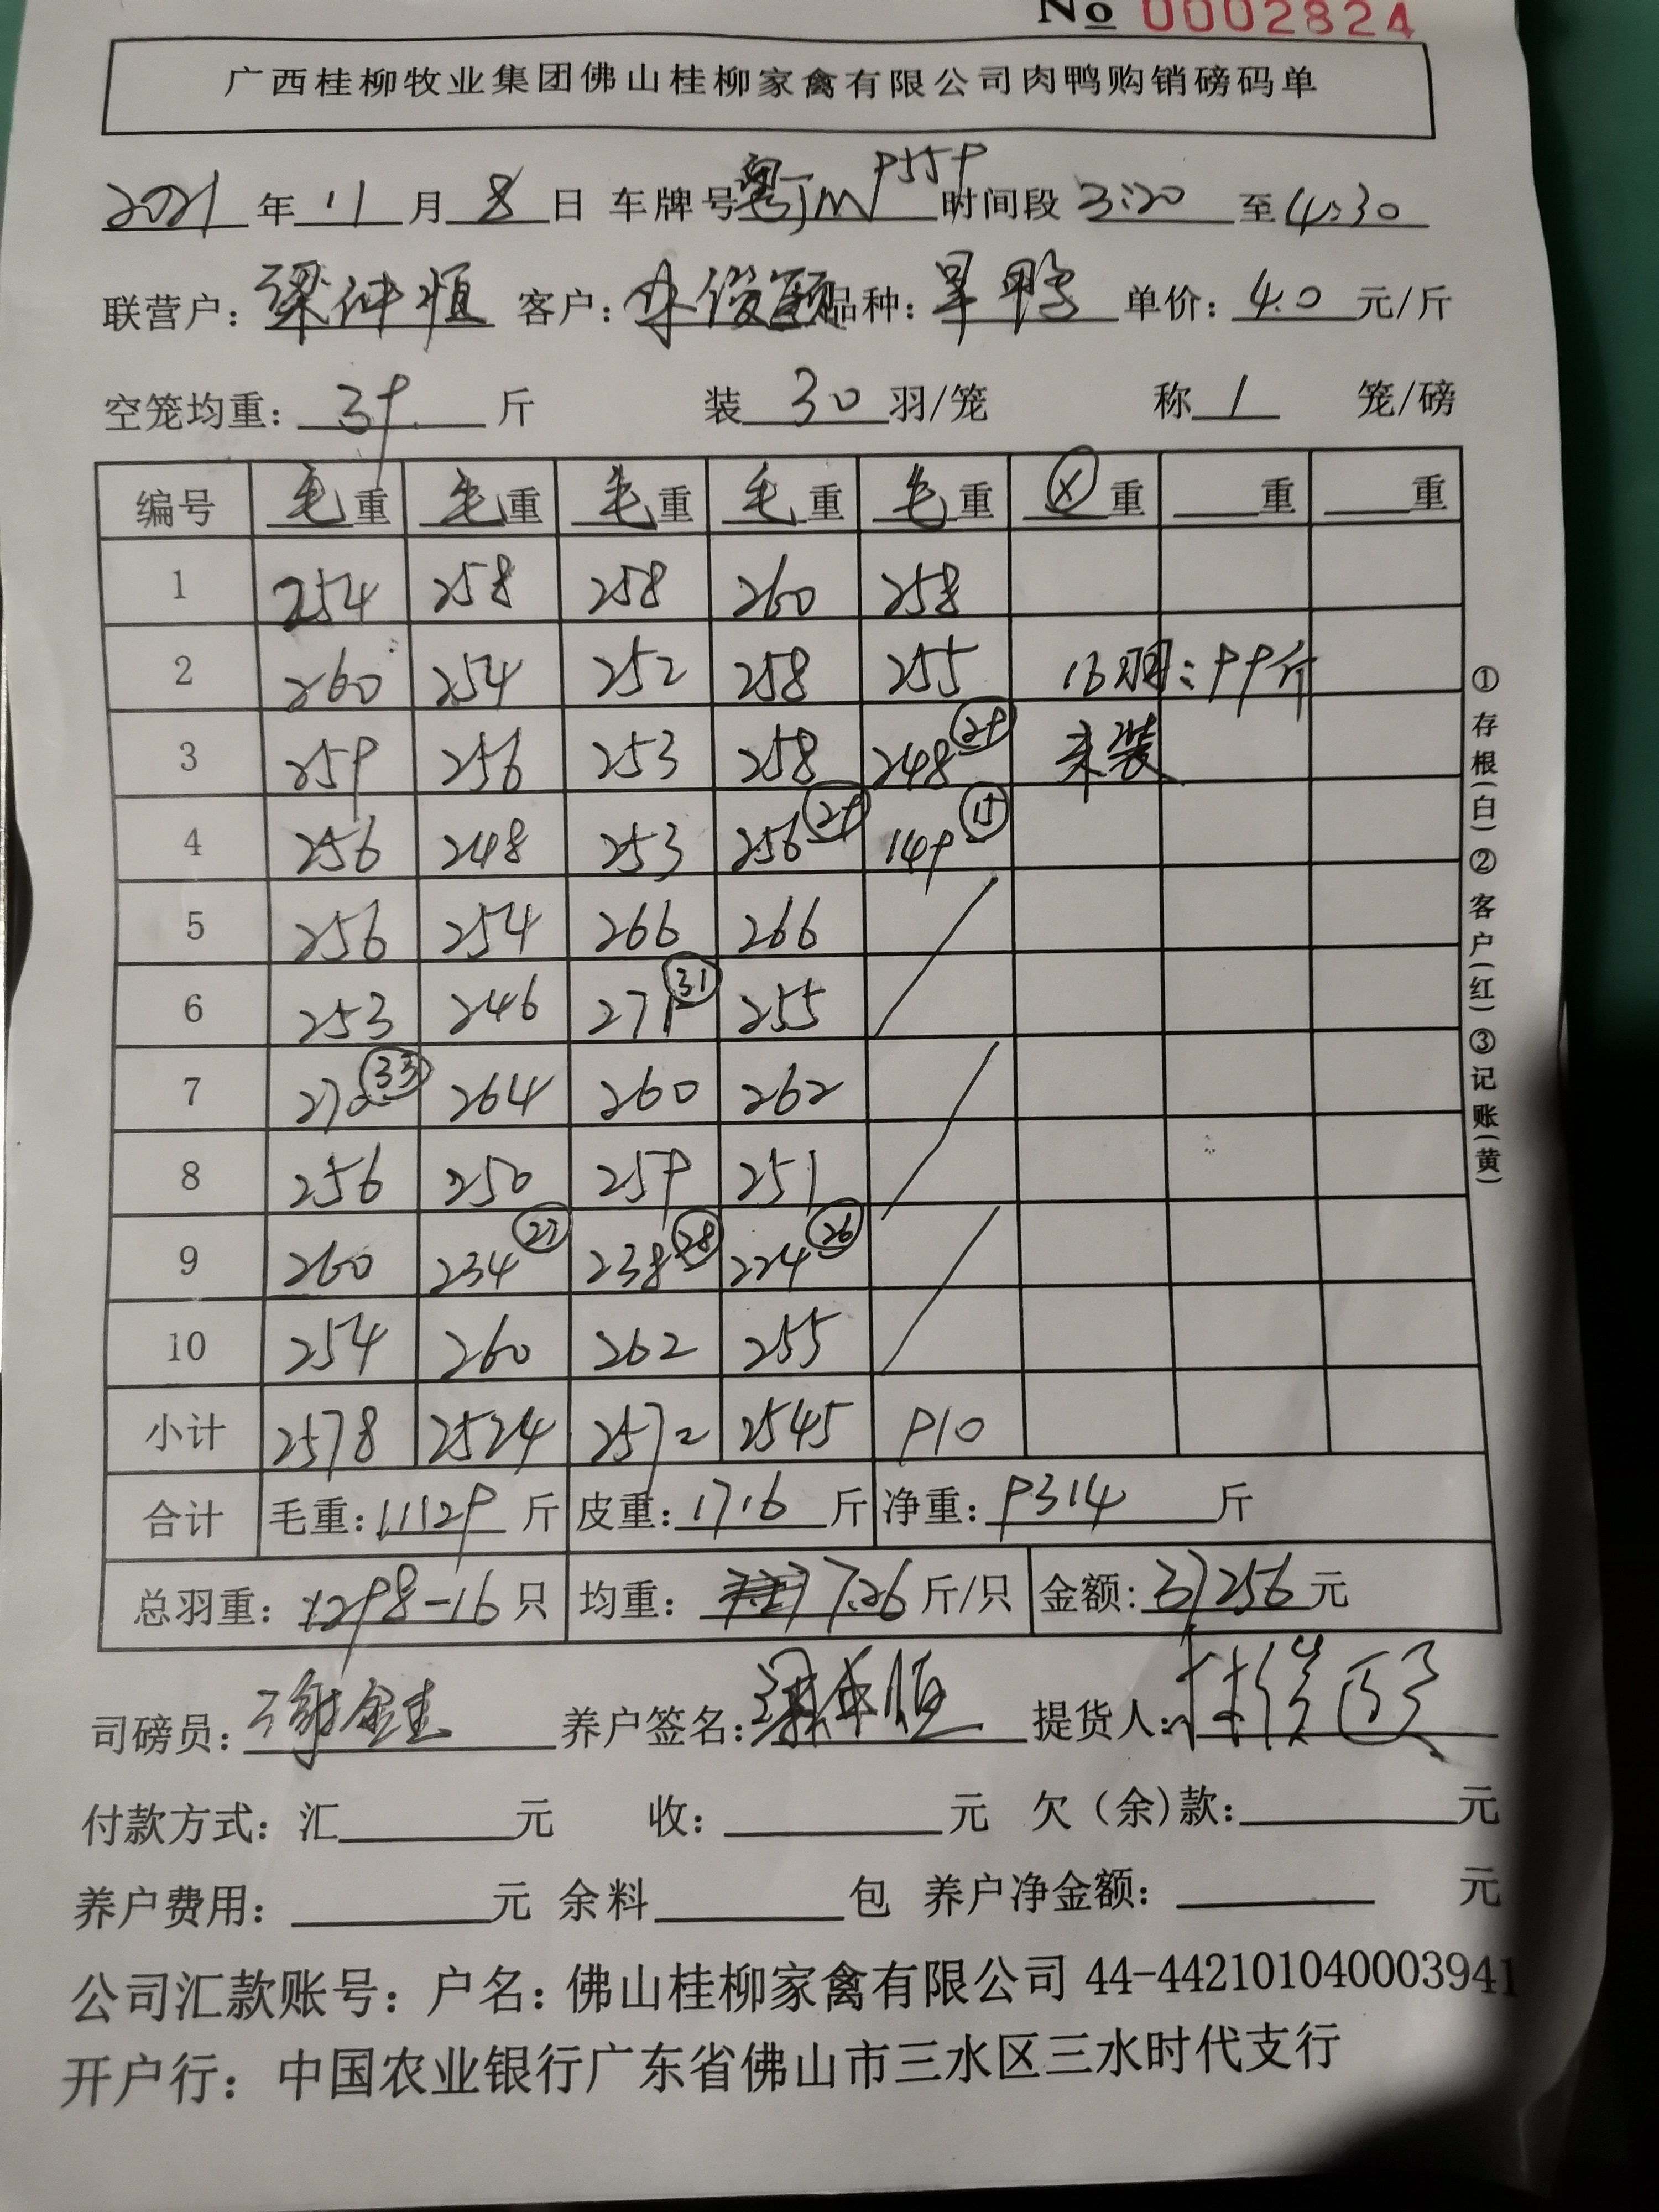 No 0002824
广西桂柳牧业集团佛山桂柳家禽有限公司肉鸭购销磅码单
2021 年 11 月 8 日 车牌号 粤JM9559 时间段 3:20 至 4:30
联营户: 梁仲恒 客户: 林俊颐 品种: 旱鸭 单价: 4.0 元/斤
空笼均重: 39 斤 装 30 羽/笼 称 1 笼/磅
编号 毛重 毛重 毛重 毛重 毛重 Ⓧ重 重 重
1 254 258 258 260 258
2 260 254 252 258 255 16羽:99斤
3 259 256 253 258 248 (29) 未装
4 256 248 253 256 (29) 149 (15)
5 256 254 266 266
6 253 246 271 (31) 255
7 270 (33) 264 260 262
8 256 250 259 251
9 260 234 (27) 238 (28) 224 (26)
10 254 260 262 255
小计 2578 2524 2572 2545 910
合计 毛重: 11129 斤 皮重: 1716 斤 净重: 9314 斤
总羽重: 1298-16 只 均重: 7.26 斤/只 金额: 37256 元
司磅员: 谢金 养户签名: 梁仲恒 提货人: 林俊颐
付款方式: 汇 元 收: 元 欠(余)款: 元
养户费用: 元 余料 包 养户净金额: 元
公司汇款账号: 户名: 佛山桂柳家禽有限公司 44-442101040003941
开户行: 中国农业银行广东省佛山市三水区三水时代支行
①存根(白)②客户(红)③记账(黄)